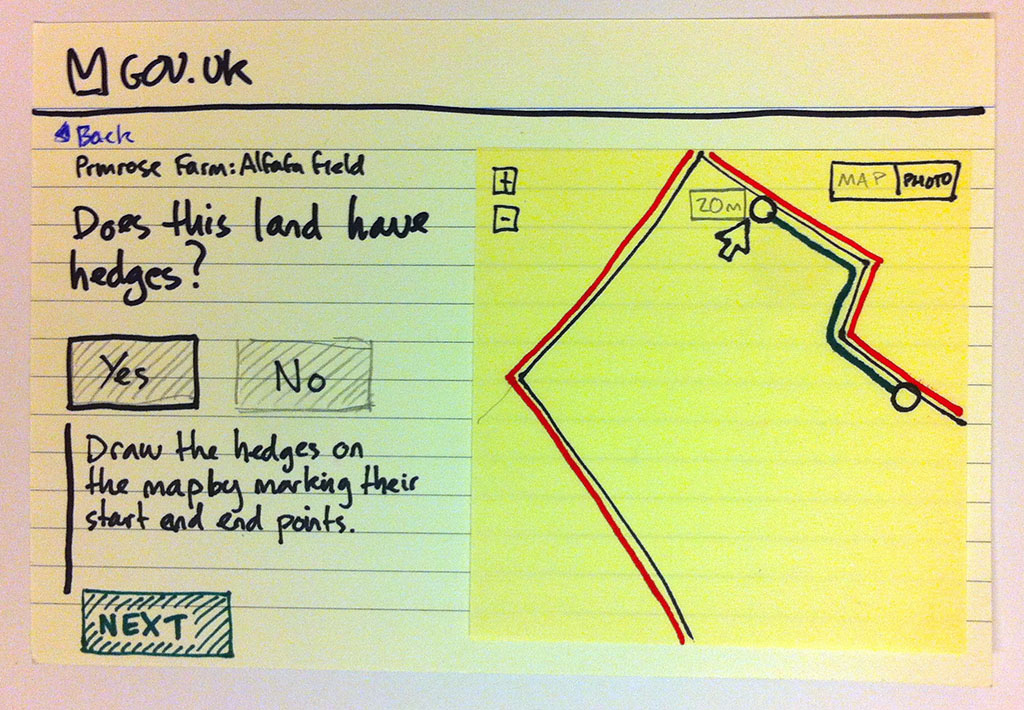 GOV.UK
Back
Primrose Farm: Alfafa field
Does this land have
hedges?
Yes
No
Draw the hedges on
the map by marking their
start and end points.
NEXT
+
-
20m
MAP
PHOTO